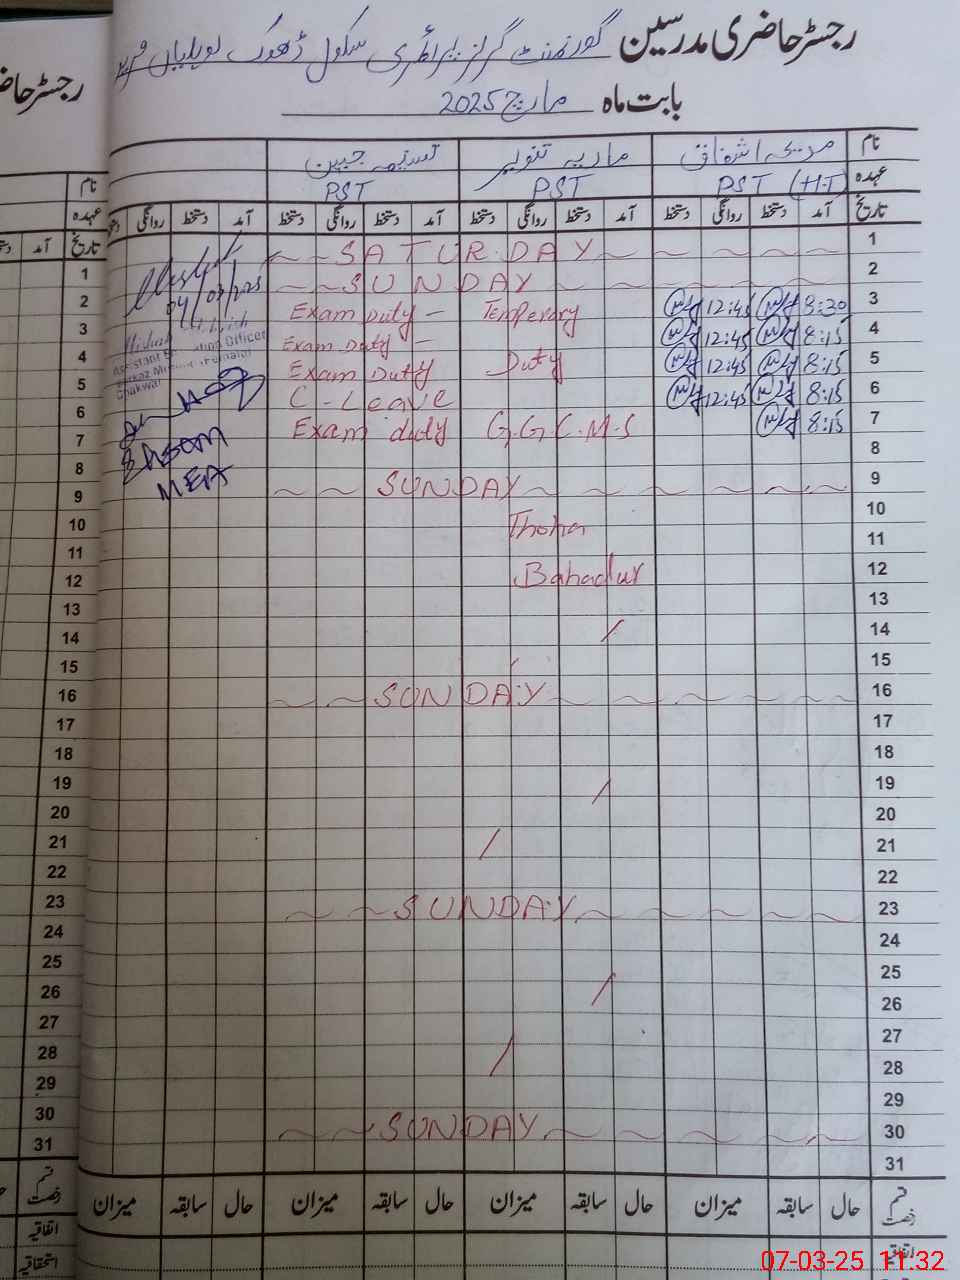 رجسٹر حاضری مدرسین گورنمنٹ گرلز پرائمری سکول ڈھوک
بابت ماہ مارچ 2025
نام مدیحہ اشفاق ماریہ تنویر تسنیمہ جبین
عہدہ PST (H.T) PST PST
تاریخ آمد دستخط روانگی دستخط آمد دستخط روانگی دستخط آمد دستخط روانگی دستخط آمد دستخط روانگی دستخط
1 SATURDAY
2 SUNDAY
3 8:30 12:45 Temperory Exam Duty -
4 8:15 12:45 Exam Duty -
5 8:15 12:45 Duty Exam Duty
6 8:15 12:45 C-Leave
7 8:15 G.G.C.M.S Exam duty
8
9 SUNDAY
10 Thoha
11
12 Bahadur
13
14
15
16 SUNDAY
17
18
19
20
21
22
23 SUNDAY
24
25
26
27
28
29
30 SUNDAY
31
قسم رخصت حال سابقہ میزان حال سابقہ میزان حال سابقہ میزان حال سابقہ میزان
اتفاقیہ
04/03/2025
Assistant Education Officer
Chakwal
MEA
رجسٹر
نام
عہدہ
تاریخ آمد
1
2
3
4
5
6
7
8
9
10
11
12
13
14
15
16
17
18
19
20
21
22
23
24
25
26
27
28
29
30
31
قسم رخصت
اتفاقیہ
استحقاقیہ
07-03-25 11:32